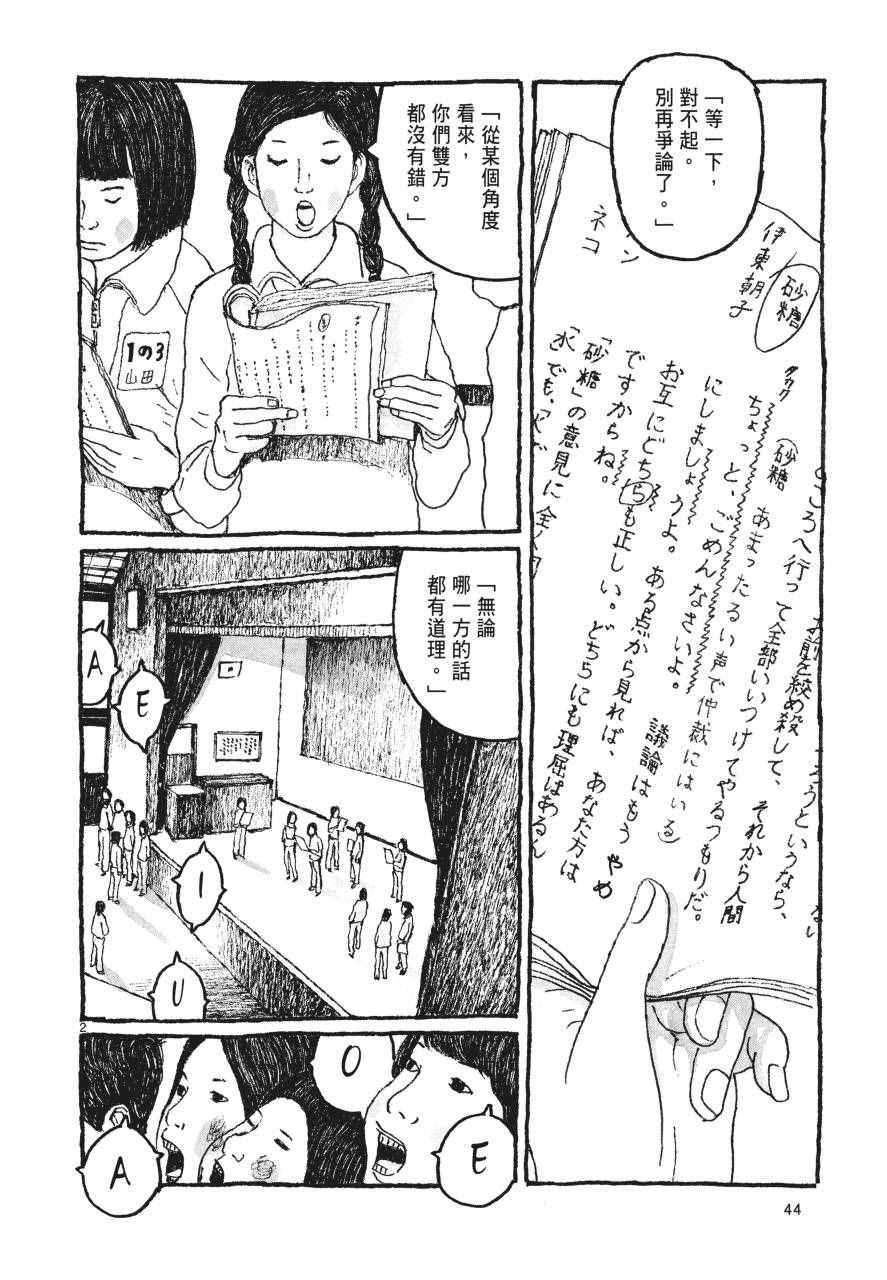 「等一下，
對不起。
別再爭論了。」
ン
ネコ
砂糖
伊東朝子
ない
ろうというなら、
お前を絞め殺して、それから人間
ころへ行って全部いいつけてやるつもりだ。
砂糖　あまったるい声で仲裁にはいる）
タカク
ちょっと、ごめんなさいよ。議論はもうやめ
にしましょうよ。ある点から見れば、あなた方は
お互にどちらも正しい。どちらにも理屈はあるん
ですからね。
「砂糖」の意見に全
「水」でも、「火」で
「從某個角度
看來，
你們雙方
都沒有錯。」
1の3
山田
「無論
哪一方的話
都有道理。」
A
E
I
U
2
O
E
A
44